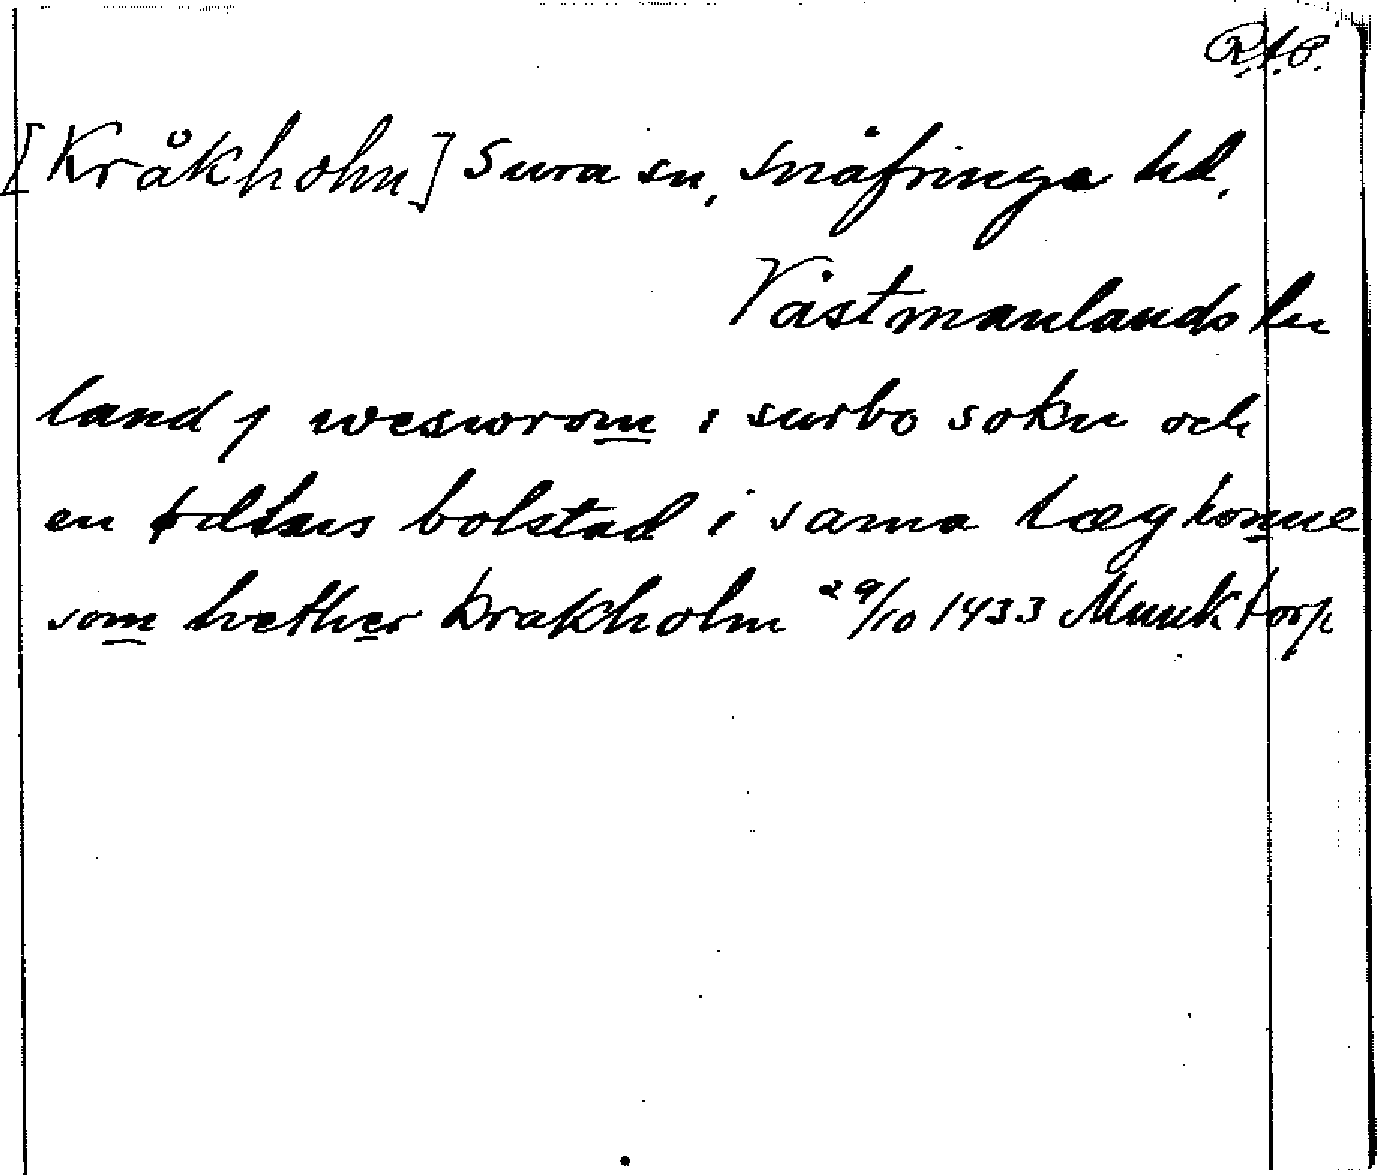 R.A.P.
[Kråkholm] Sura sn, Snäfringa hd,
Västmanlands län
land j weswrom i surbo sokn och
en bolstad i sama tæghonne
som hether krakholm 29/10 1433 Munktorp